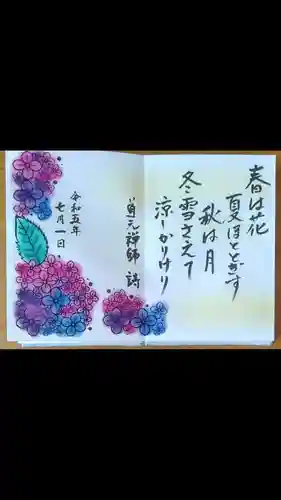 春は花
夏ほととぎす
秋は月
冬雪さえて
涼しかりけり
道元禅師 詩
令和五年
七月一日